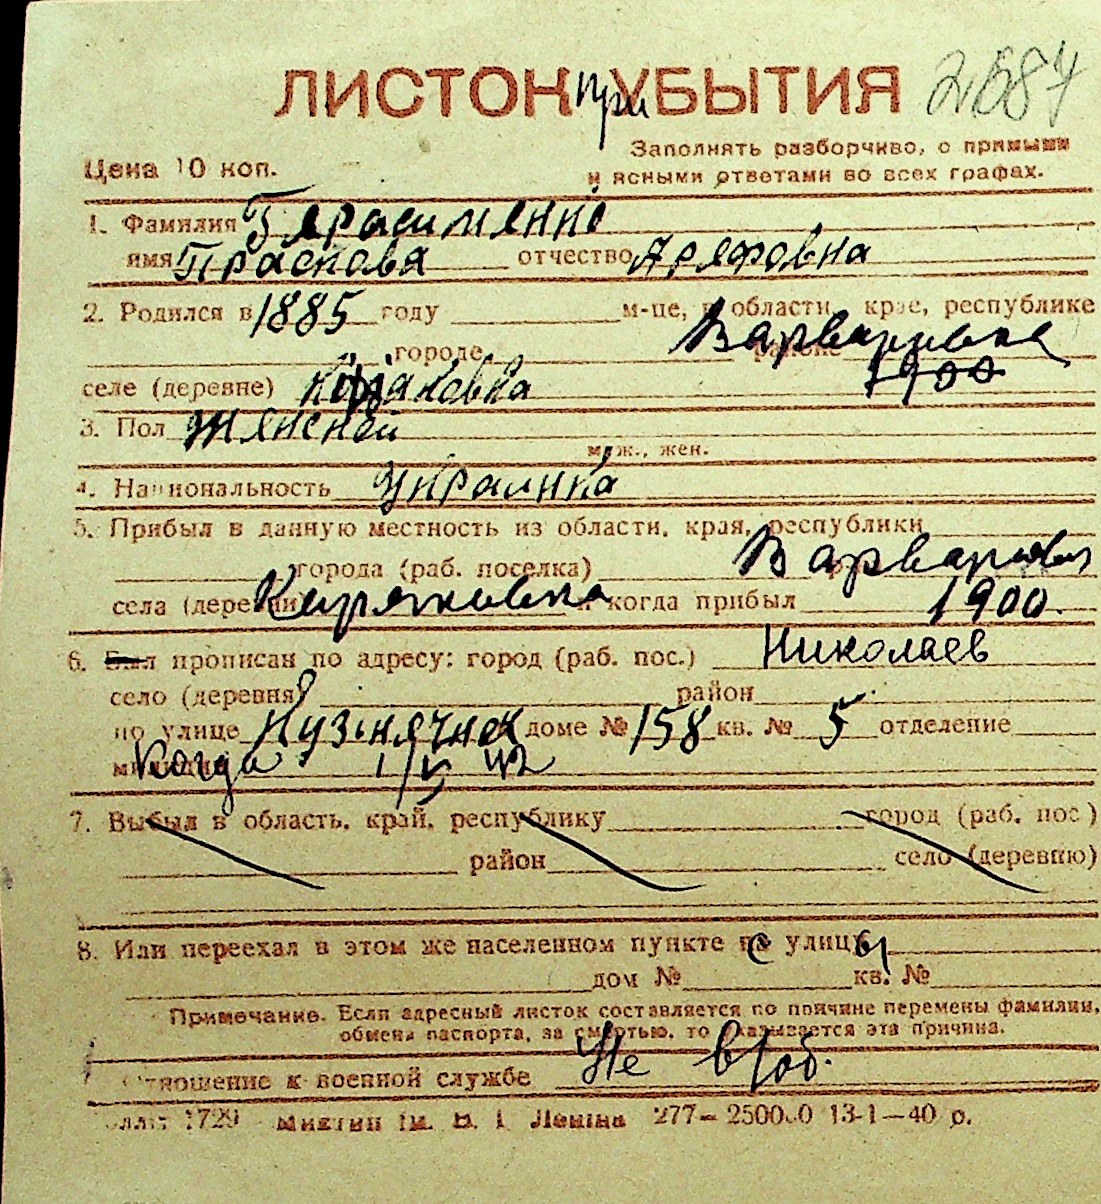 ЛИСТОК при УБЫТИЯ 2887
Цена 10 коп.
Заполнять разборчиво, с прямыми
и ясными ответами во всех графах.
1. Фамилия Герасименко
имя Прасковя отчество Арефовна
2. Родился в 1885 году м-це, в области, крае, республике
городе Варваровка районе
селе (деревне) 1900
3. Пол Женской
муж., жен.
4. Национальность Украинка
5. Прибыл в данную местность из области, края, республики
города (раб. поселка) Варваровка
села (деревни) Киряковка и когда прибыл 1900.
6. Был прописан по адресу: город (раб. пос.) Николаев
село (деревня) район
по улице Кузнячная доме № 158 кв. № 5 отделение
милиции Когда 1/V 42
7. Выбыл в область, край, республику город (раб. пос)
район село (деревню)
8. Или переехал в этом же населенном пункте с улицы
дом № кв. №
Примечание. Если адресный листок составляется по причине перемены фамилии,
обмена паспорта, за смертью, то указывается эта причина.
Отношение к военной службе Не в/об.
1729 им. В. І Леніна 277—250000 13-1—40 р.